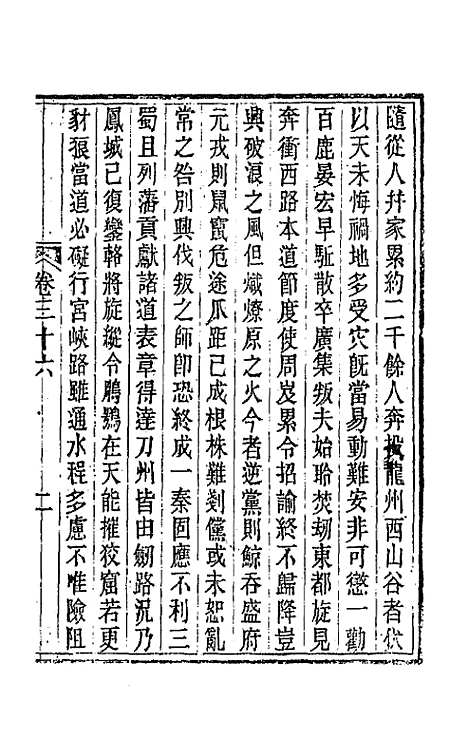 隨從人幷家累約二千餘人奔投龍州西山谷者伏
以天未悔禍地多受灾旣當易動難安非可懲一勸
百鹿晏宏早駈散卒廣集叛夫始聆焚刼東都旋見
奔衝西路本道節度使周岌累令招諭終不歸降豈
興破浪之風但熾燎原之火今者逆黨則鯨吞盛府
元戎則鼠竄危途爪距已成根株難剗儻或未恕亂
常之咎別興伐叛之師卽恐終成一秦固應不利三
蜀且列藩貢獻諸道表章得達刀州皆由劒路況乃
鳳城已復鑾輅將旋縱令鵰鶚在天能摧狡窟若更
豺狼當道必礙行宮峽路雖通水程多慮不唯險阻
卷三十六
二